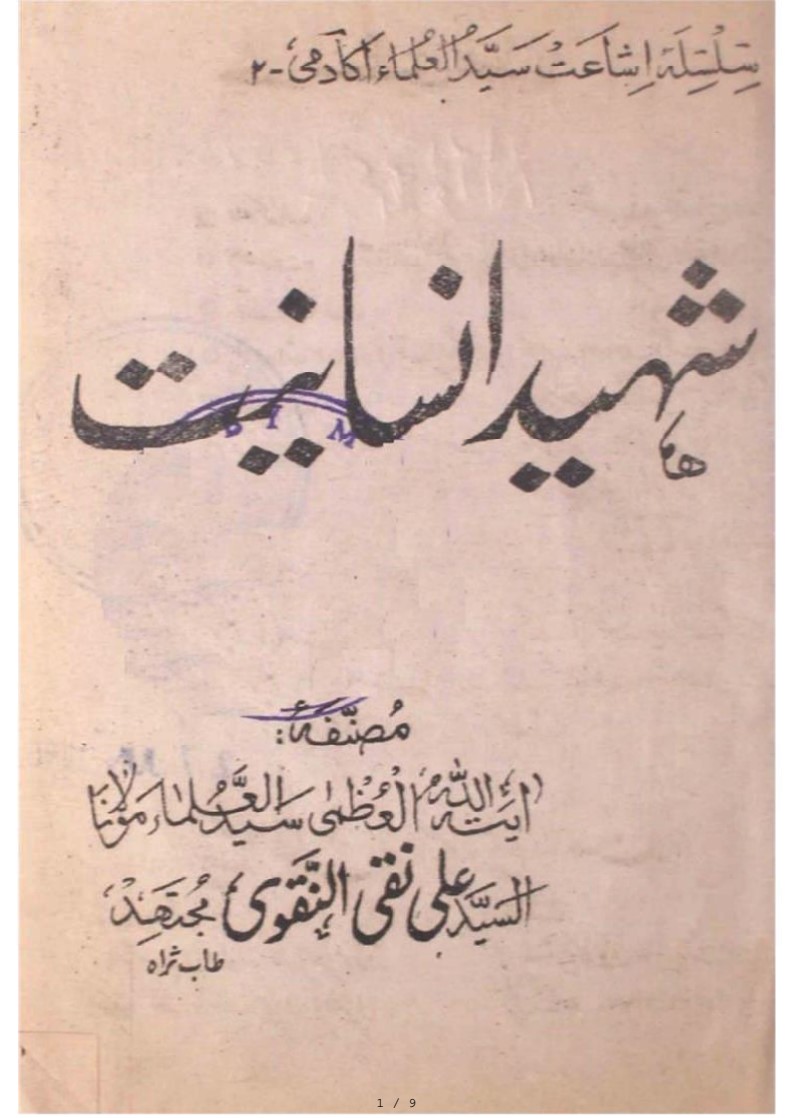 سِلْسِلَۂ اِشاعَتْ سَیَّدُ العُلماء اکادمی - ۲
شہید انسانیت
مُصَنّفۂ:
آیتہ اللّٰہ العُظمٰی سَیّدُ العُلماء مَولانا
السیّد علی نقی النّقوی مُجتَھِدْ
طاب ثراہ
1 / 9